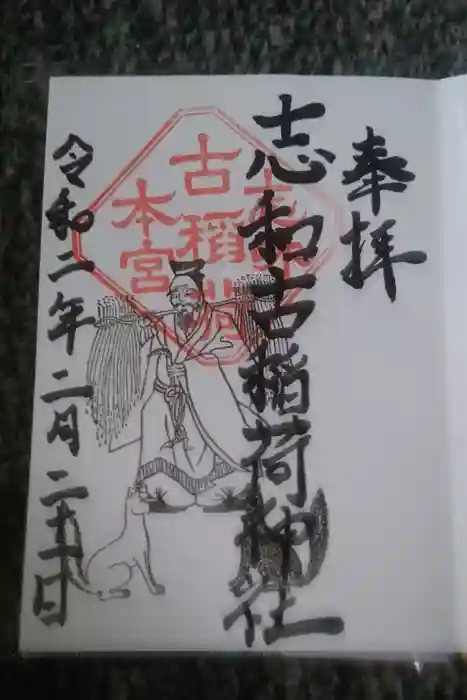 奉拝
志和古稲荷神社
古稲荷
本宮
令和二年二月二十一日